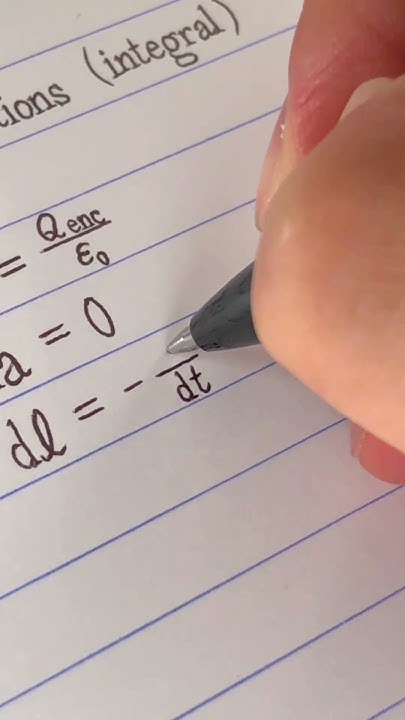 tions (integral)
= Q enc / ε₀
a = 0
dl = - / dt